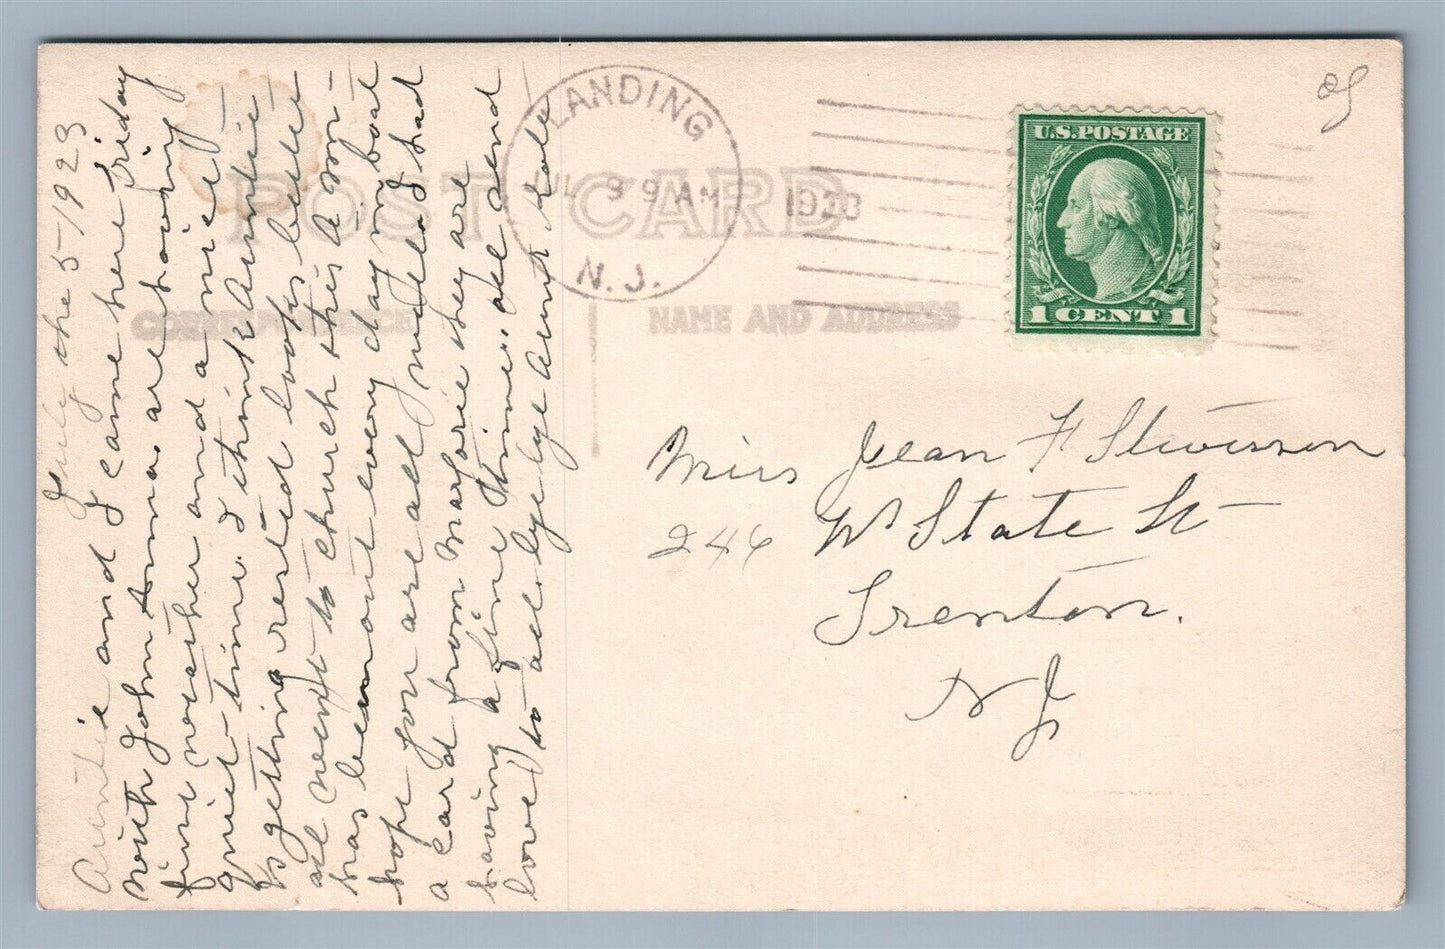 July the 5-1923
Auntie and I came here Friday
with John & Anna. are having
fine weather and a nice
quiet time. I think Auntie
is getting rested looks better
all went to church this A.M.
has been out every day in boat
hope you are all well I had
a card from Marjorie they are
having a fine time. all send
love to all. lylye Aunt
POST CARD
CORRESPONDENCE
NAME AND ADDRESS
LANDING
L 3 9 AM
N.J.
1923
U.S. POSTAGE
1 CENT 1
Miss Jean F Stevenson
246 W State St
Trenton.
N J